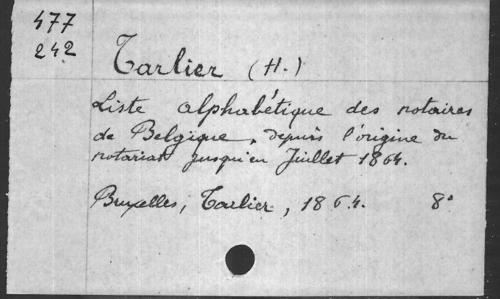 477
242
Tarlier (H.)
Liste alphabétique des notaires
de Belgique, depuis l'origine du
notariat jusqu'en Juillet 1864.
Bruxelles, Tarlier, 1864. 8°